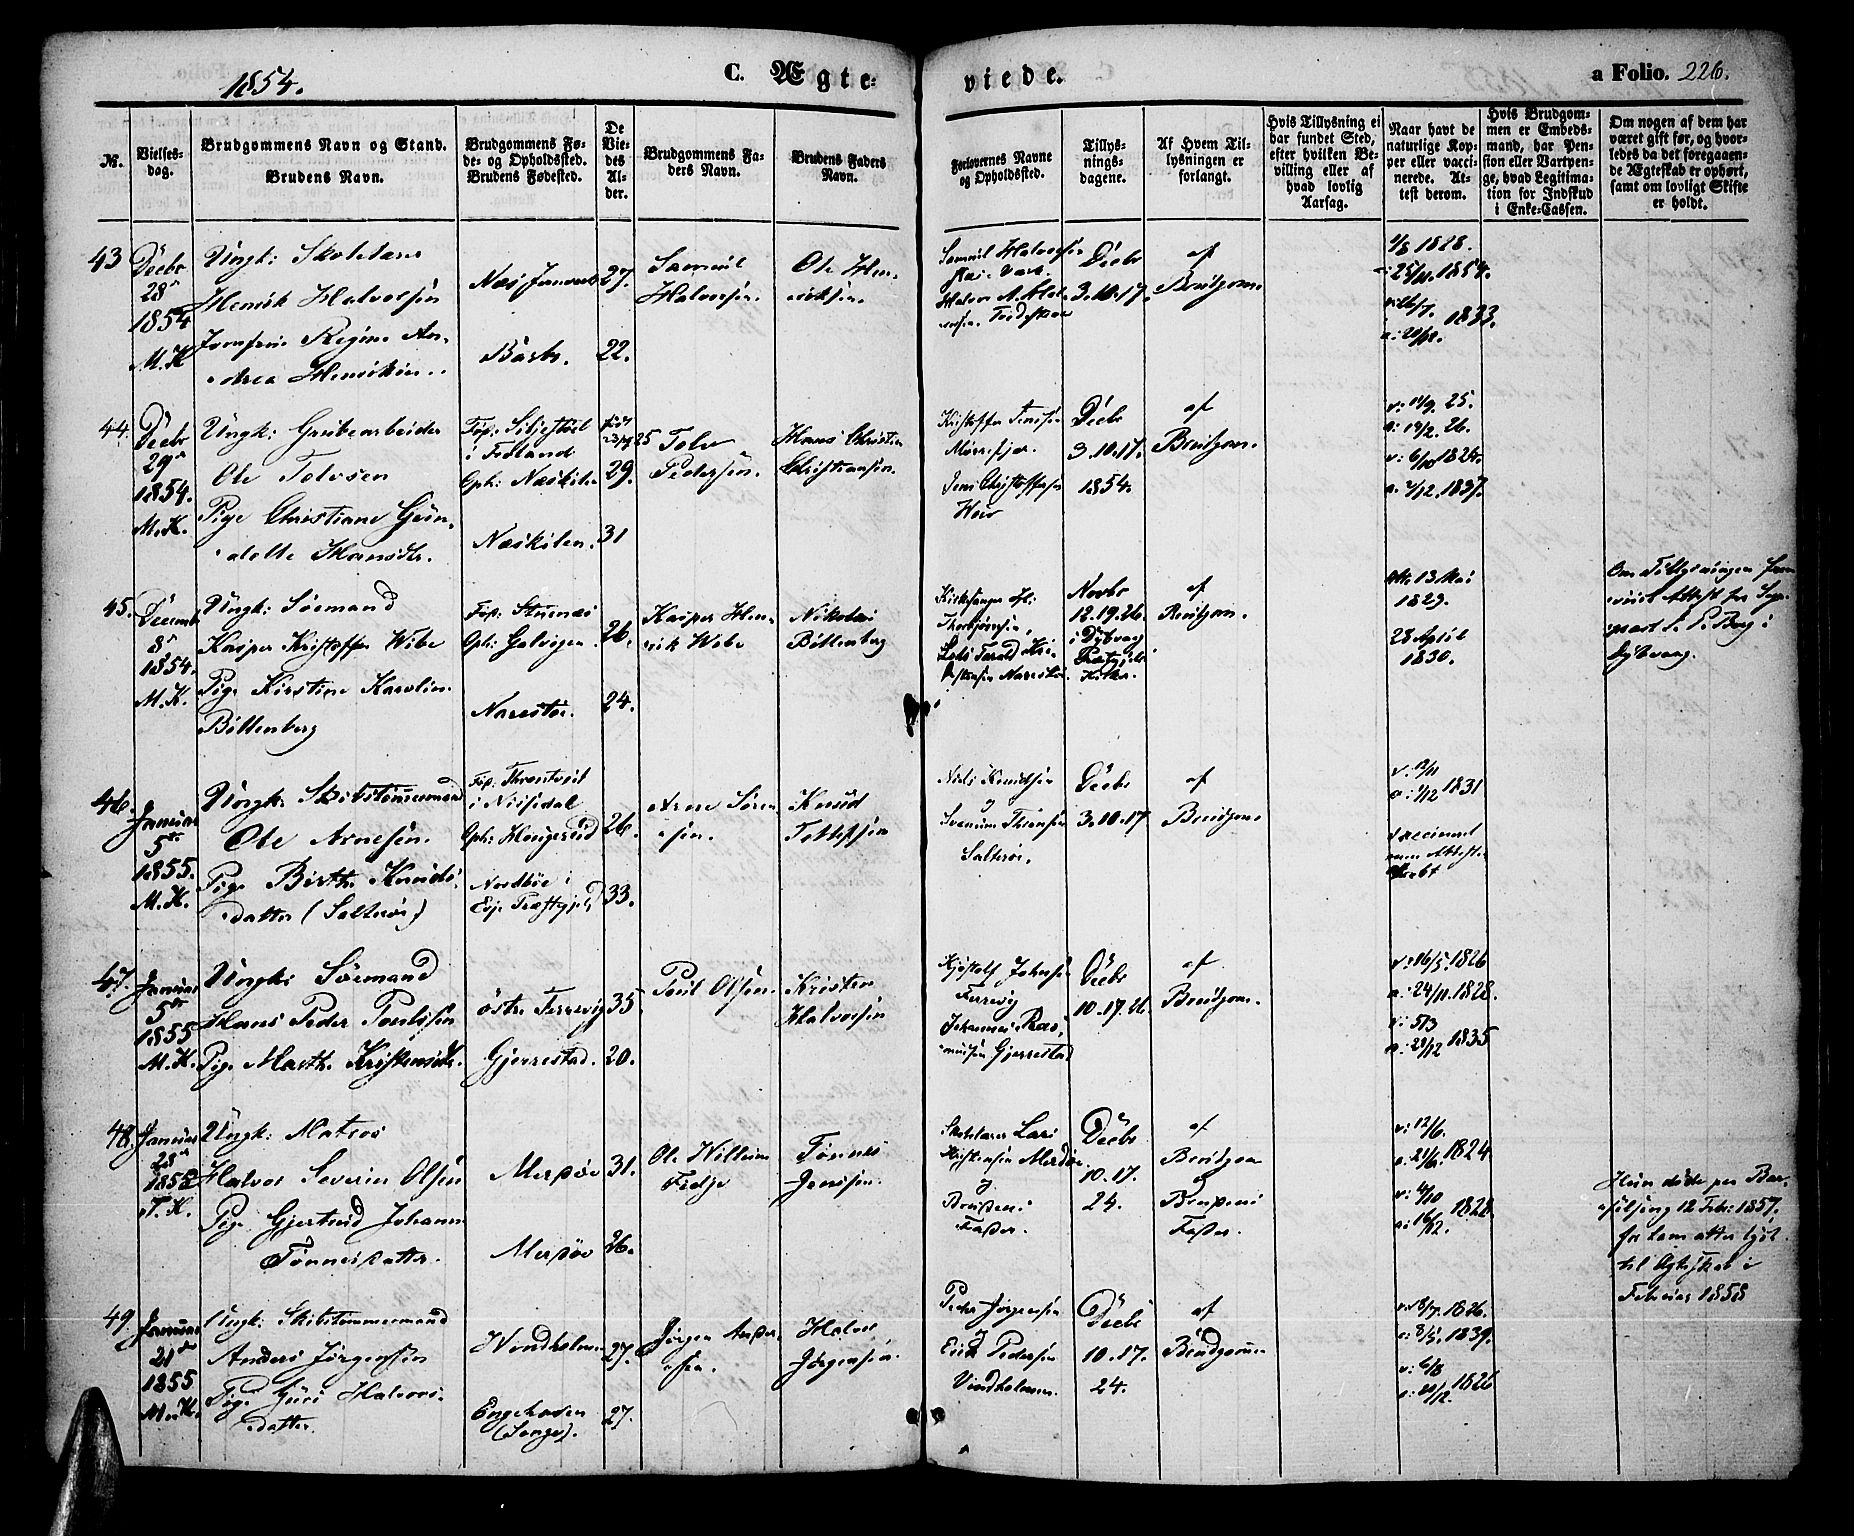 1854.
C. Ægte-
viede.
a Folio. 226.
No.
Vielses-
dag.
Brudgommens Navn og Stand.
Brudens Navn.
Brudgommens Fø-
de- og Opholdssted.
Brudens Fødested.
De
Vie-
des
Al-
der.
Brudgommens Fa-
ders Navn.
Brudens Faders
Navn.
Forlovernes Navne
og Opholdssted.
Tillys-
nings-
dagene.
Af Hvem Til-
lysningen er
forlangt.
Hvis Tillysning ei
har fundet Sted,
efter hvilken Be-
villing eller af
hvad lovlig
Aarsag.
Naar havt de
naturlige Kop-
per eller vacci-
nerede. At-
test derom.
Hvis Brudgom-
men er Embeds-
mand, har Pen-
sion eller Vartpen-
ge, hvad Legitima-
tion for Indskud
i Enke-Cassen.
Om nogen af dem har
været gift før, og hvor-
ledes da det foregaaen-
de Ægteskab er ophørt,
samt om lovligt Skifte
er holdt.
43
Decbr
28
1854
M.K
Ungk: Skolelærer
Henrik Halvorsen
Jomfrue Regine An-
drea Henriksen.
Næs Jernverk
Barbo.
27.
22.
Samuel
Halvorsen.
Ole Hen-
riksen.
Samuel Halvorsen
Halvor
Decbr
3.10.17.
af
Brudgom.
1/8 1828.
25/11 1854.
1833.
44.
Decbr
29
1854.
M.K.
Ungk: Grubearbeider
Ole Tolvsen
Pige Christiane Gun-
delle Hansdtr.
i Froland
Oph: Næskilen
Næskilen.
29.
31
Tolv
Pedersen.
Hans Christian
Christiansen.
Jens Christoffersen
Decbr
3.10.17.
1854.
af
Brudgom.
v: 11/9. 25.
a: 19/2. 26.
v: 6/10 1824.
a: 2/12. 1837.
45.
Decemb
8
1854.
M.K.
Ungk: Sømand
Kasper Kristoffer Wibe
Pige Kirstine Karolin
Böttenberg
Narestø.
26.
24.
Kasper Hen-
rik Wibe
Nikolai
Böttenberg
Kirkesanger
Narestø.
Novbr
12.19.26
i Dybvaag
Præstegjelds
Kirke.
af
Brudgom.
13 Mai
1829.
28 April
1830.
Om Tillysningen frem
viist Attest fra Sogne
præst Berg i
Dybvaag.
46.
Januar
5te
1855.
M.K.
Ungk: Skibstömmermand
Ole Arnesen.
Pige Birthe Knuds-
datter (Salterøe)
i Nissedal
Nordbøe i
Evje Præstegjeld
26.
33.
Arne Sören
sen.
Knud
Tellefsen
Niels Knudsen
og
Salterøe.
Decbr
3.10.17
af
Brudgom.
v: 12/11
a: 1/12 1831
vaccineret
men Attesten
tabt
47.
Januar
5te
1855
M.K.
Ungk: Sømand
Hans Peder Poulssen
Pige Marthe Kristensdtr.
östre Ferrevig
Gjerrestad.
35.
20.
Poul Olsen
Kristen
Halvorsen
Kjøstolf Johnsen
Ferrevig
Johannes Ras-
mussen Gjerrestad
Decbr
10.17.26.
af
Brudgom.
v: 16/5 1826
a: 24/11 1828.
v: 5/3
a: 28/12 1835
48.
Januar
28
1855
T.K.
Ungk: Matros
Halvor Severin Olsen
Pige Gjertrud Johanne
Tönnesdatter.
Merdøe
Merdøe
31.
26.
Ole Willum
Fredje
Tønnes
Jenssen.
Skolelærer Lars
Kristensen Merdøe
og
Brudens
Fader.
Decbr
10.17.
24.
af
Brudgom
og
Brudens
Fader.
v: 12/6.
a: 21/6. 1824
v: 4/10
a: 16/12. 1828.
Hun døde paa Bar-
selseng 12 Febr: 1857.
for ham atter lyst
til Ægteskab i
Februar 1858
49.
Januar
21de
1855
M.K.
Ungk: Skibstømmermand
Anders Jörgensen
Pige Guri Halvors-
datter.
Vindholmen
Engehaven
(Songe).
27.
27.
Jørgen Ander
sen.
Halvor
Jörgensen.
Peder Jörgensen
og
Erik Pedersen
Vindholmen.
Decbr
10.17.
24.
af
Brudgommen
v: 18/7. 1826.
a: 8/5. 1839.
v: 6/8
a: 20/12. 1826